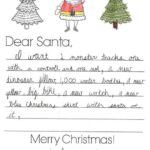 Dear Santa,
I want 2 monster trucks one
with a controls and one not, a new
dinosaur pillow 1,000 water bottles, a new
pillow big bike, a new watch, a new
blue christmas shirt with santa on
it.
Merry Christmas!